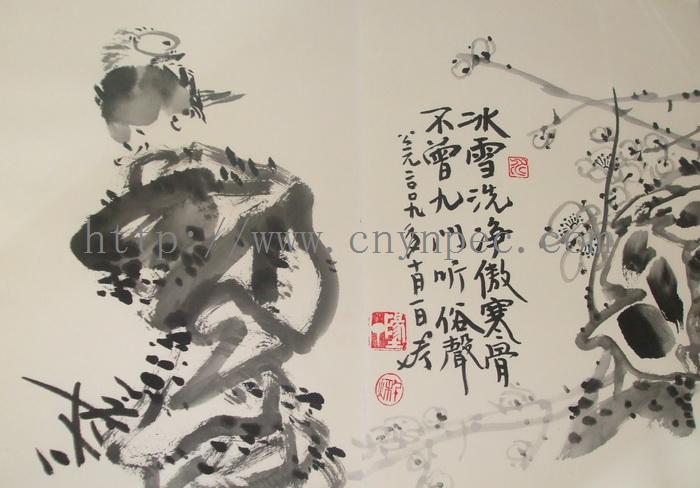 冰雪洗多傲寒骨
不曾九州听俗聲
公元二〇〇九年十月一日
http://www.cnynpec.com